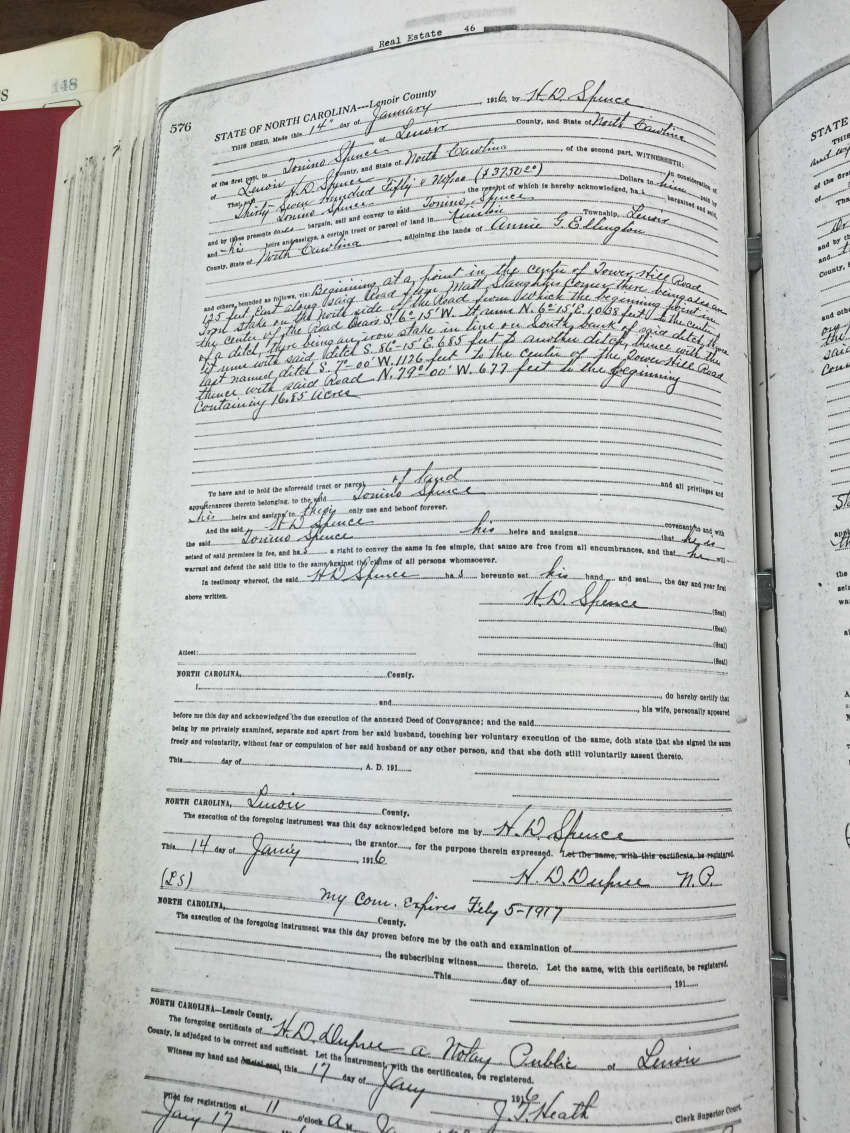 148
S
Real Estate 46
576
STATE OF NORTH CAROLINA---Lenoir County
THIS DEED, Made this 14" day of January, 1916, by H. D. Spence
of Lenoir County, and State of North Carolina
of the first part, to Tonino Spence
of Lenoir County, and State of North Carolina, of the second part, WITNESSETH:
That H. D. Spence, in consideration of
Thirty Seven hundred Fifty & No/100 ($3750.00) Dollars to him paid by
Tonino Spence the receipt of which is hereby acknowledged, ha.s bargained and sold,
and by these presents does bargain, sell and convey to said Tonino Spence
and his heirs and assigns, a certain tract or parcel of land in Kinston Township, Lenoir
County, State of North Carolina, adjoining the lands of Annie G. Ellington
and others, bounded as follows, viz: Beginning at a point in the center of Tower Hill Road
125 feet East along said Road from Matt Slaughters Corner, there being also an
iron stake on the North side of the Road from which the beginning point in
the center of the Road Bears S. 6°-15' W. It runs N. 6°-15' E. 1038 feet to the center
of a ditch, there being an iron stake in line on South bank of said ditch, thence
it runs with said ditch S. 86°-15' E. 685 feet to another ditch, thence with the
last named ditch S. 7°-00' W. 1126 feet to the center of the Tower Hill Road
thence with said Road N. 79°-00' W. 677 feet to the beginning
Containing 16.85 Acres
To have and to hold the aforesaid tract or parcel of land and all privileges and
appurtenances thereto belonging, to the said Tonino Spence
his heirs and assigns, to their only use and behoof forever.
And the said H D Spence covenant to and with
the said Tonino Spence his heirs and assigns that he is
seized of said premises in fee, and ha.s a right to convey the same in fee simple, that same are free from all encumbrances, and that he will
warrant and defend the said title to the same against the claims of all persons whomsoever.
In testimony whereof, the said H D Spence ha.s hereunto set his hand, and seal, the day and year first
above written.
H. D. Spence (Seal)
(Seal)
(Seal)
(Seal)
Attest:
NORTH CAROLINA, County.
I, do hereby certify that
and, his wife, personally appeared
before me this day and acknowledged the due execution of the annexed Deed of Conveyance; and the said
being by me privately examined, separate and apart from her said husband, touching her voluntary execution of the same, doth state that she signed the same
freely and voluntarily, without fear or compulsion of her said husband or any other person, and that she doth still voluntarily assent thereto.
This day of, A. D. 191
NORTH CAROLINA, Lenoir County.
The execution of the foregoing instrument was this day acknowledged before me by H. D. Spence
, the grantor, for the purpose therein expressed. Let the same, with this certificate, be registered.
This 14 day of Jany, 1916
H. D. Dupree N. P.
(LS) my Com. Expires Feby 5-1917
NORTH CAROLINA, County.
The execution of the foregoing instrument was this day proven before me by the oath and examination of
, the subscribing witness thereto. Let the same, with this certificate, be registered.
This day of, 191
NORTH CAROLINA--Lenoir County.
The foregoing certificate of H. D. Dupree a Notay Public of Lenoir
County, is adjudged to be correct and sufficient. Let the instrument, with the certificates, be registered.
Witness my hand and official seal, this 17 day of Jany, 1916
J. T. Heath Clerk Superior Court
Filed for registration at 11 o'clock A
Jany 17